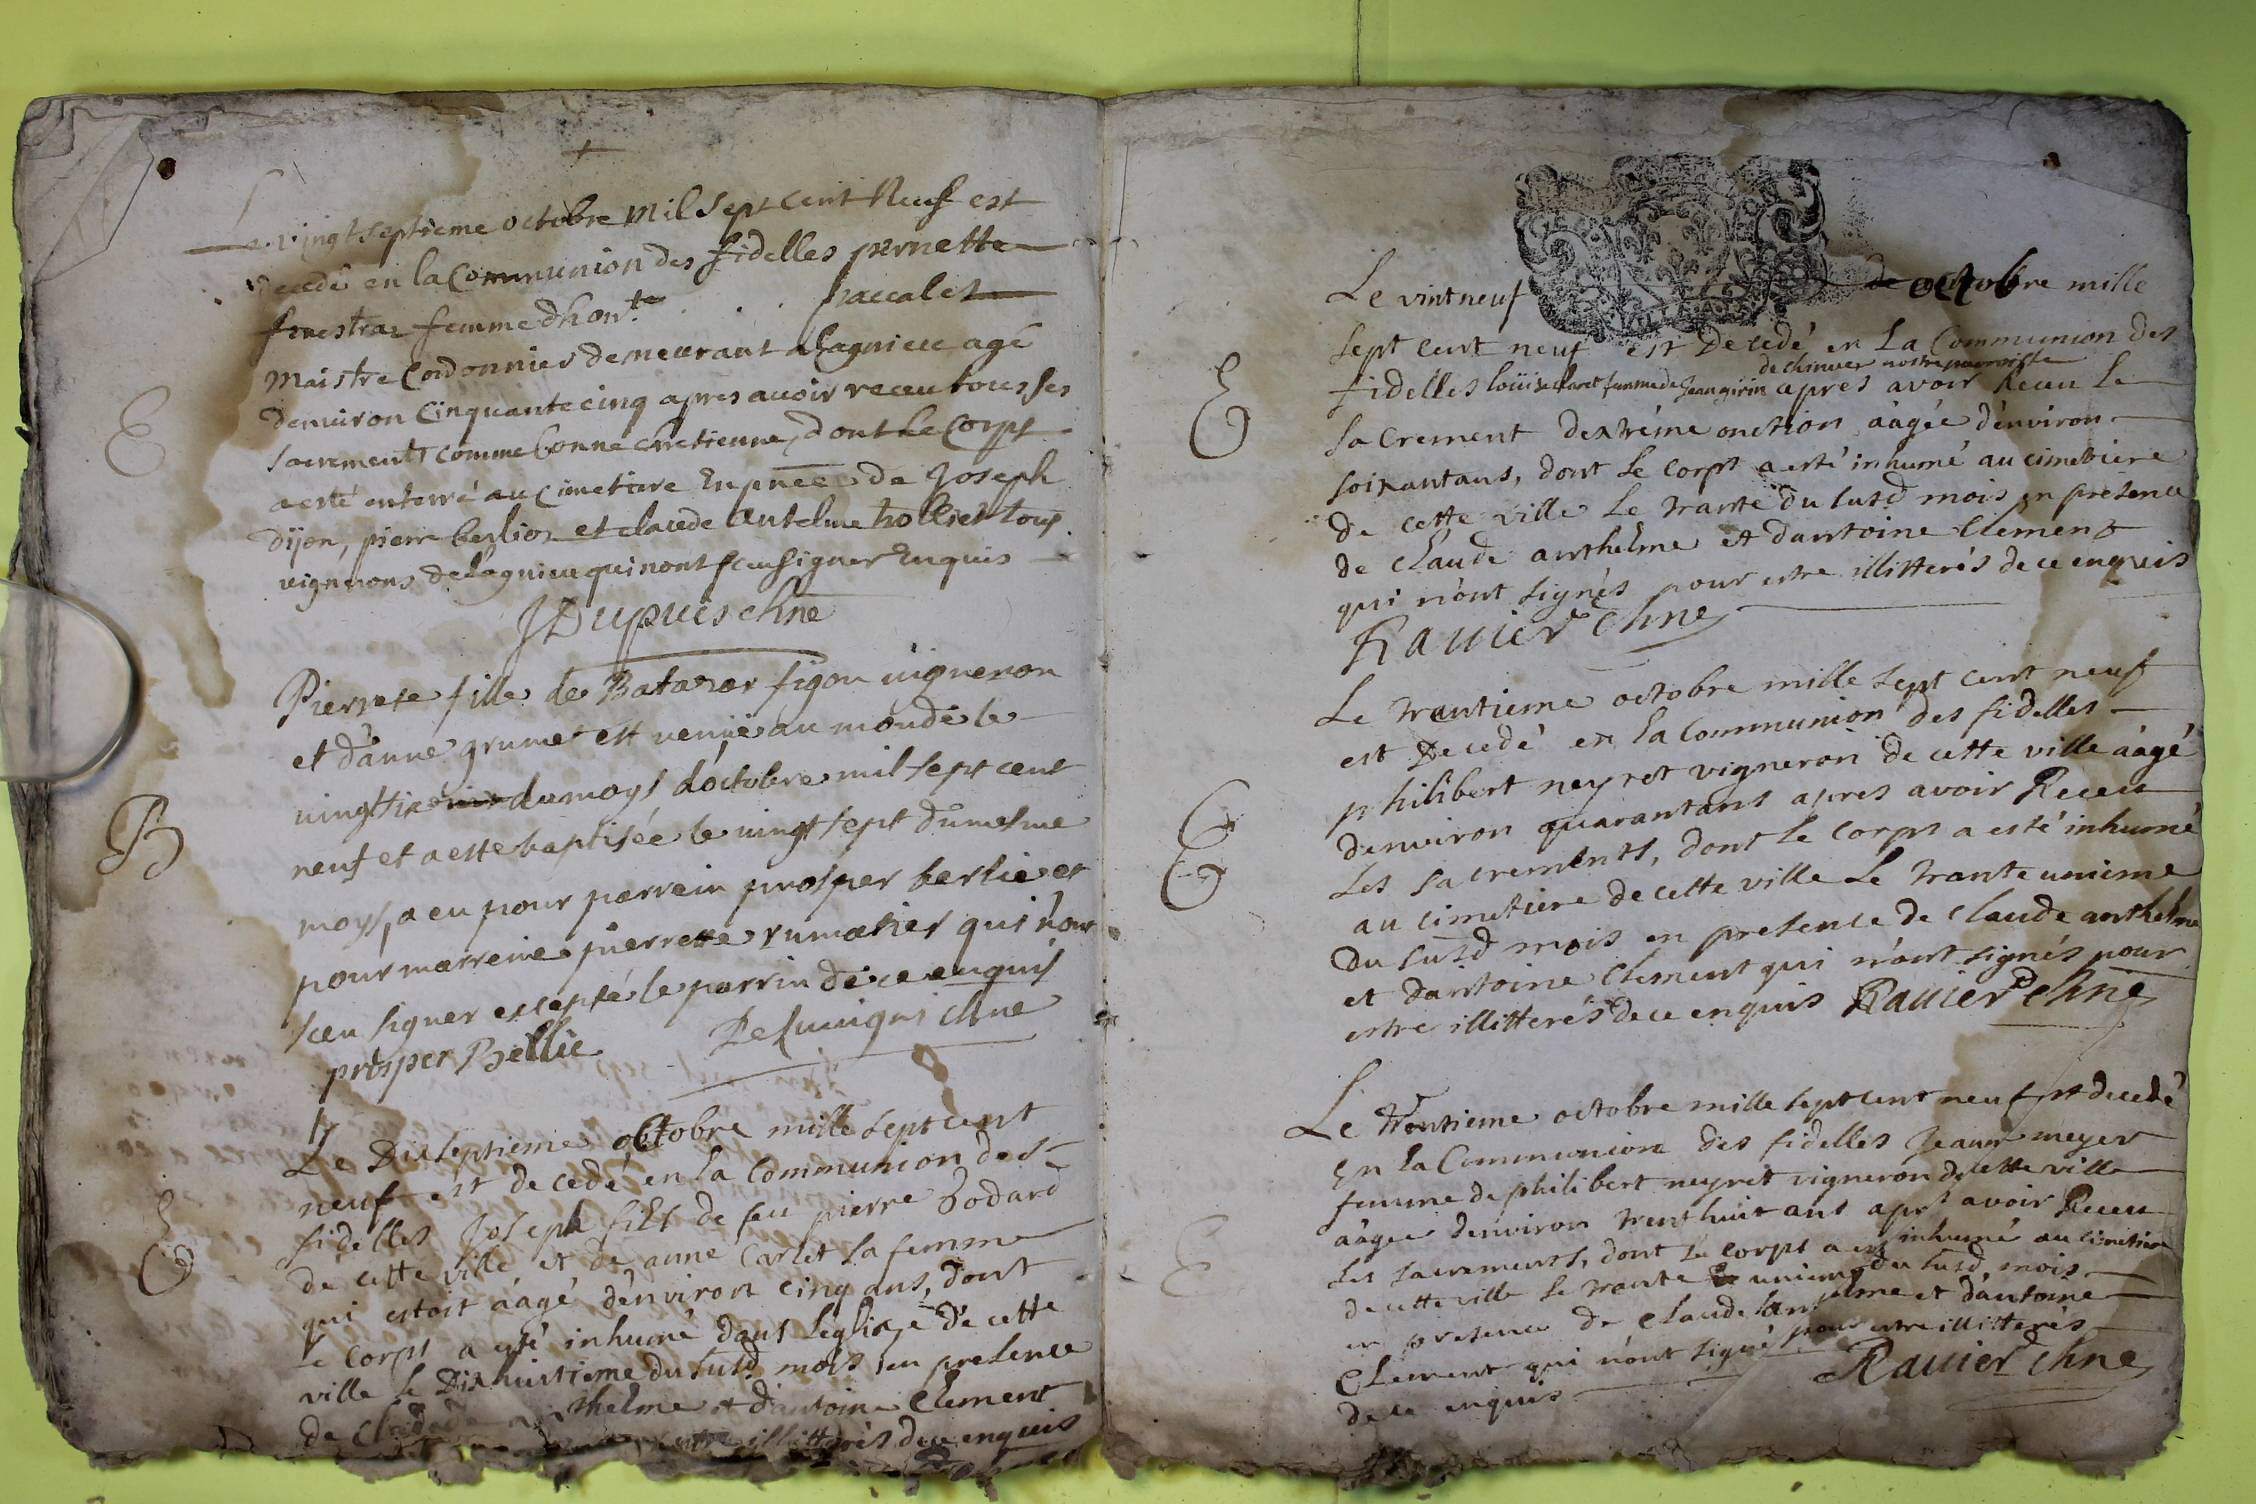 Le vingtseptieme octobre mil sept cent Neuf est
decedé en la Communion des fidelles pernette
fenestraz femme dhon.te paccalet
Maistre Cordonnier demeurant a Lagnieu agé
denviron Cinquante cinq apres avoir receu tous ses
sacrements comme bonne chretienne, dont le Corps
a esté enterré au Cimetiere En pnce de Joseph
dijon, pierre berlioz et claude antelme hollier tous
vignerons de Lagnieu qui nont sceu signer Enquis
E
JDupuis chne
Pierrete fille de Batazar figon vigneron
et d'anne grumet est venüe au monde le
vingt six du moys d'octobre mil sept cent
neuf et a esté baptisée le vingt sept du mesme
moys, a eu pour parrein prosper berlie et
pour marreine pierrette rumatier qui n'ont
sceu signer excepté le parrin de ce enquis
B
prosper Bellie
Le Dixseptieme octobre mille sept cent
17
neuf est decedé en la Communion des
fidelles Joseph fils de feu pierre Bodard
de cette ville et de anne Carlet sa femme
qui estoit áagé denviron cinq ans, dont
le corps a esté inhumé dans leglise de cette
ville le Dixhuitieme du susd mois en presence
de Claude anthelme et d'antoine Clement
estre illitterés de ce enquis
E
Le vint neuf de octobre mille
sept cent neuf est Decedé en La Communion des
de chinver nostre parroisse
fidelles loüise claret femme de Jean girin apres avoir Receu Le
sacrement dextréme onction áagée denviron
soixantans, dont le corps a esté inhumé au cimetiere
de cette ville le trante du susd mois en presence
de claude anthelme et dantoine Clement
qui n'ont signés pour estre illitterés de ce enquis
E
Ravier Chne
Le trantieme octobre mille sept cent neuf
est Decedé en la Communion des fidelles
philibert neyret vigneron de cette ville áagé
denviron quarantans apres avoir Receu
Les sacrements, dont le corps a esté inhumé
au cimetiere de cette ville Le trante unieme
Du susd mois en presence de claude anthelme
et dantoine Clement qui n'ont signés pour
estre illitterés de ce enquis Ravier Chne
E
Le trentieme octobre mille sept cent neuf est decedé
En la Communion des fidelles Jeane meyer
femme de philibert neyret vigneron de cette ville
áagée denviron trent huit ans aprs avoir Receu
Les sacrements, dont le corps a esté inhumé au cimetiere
de cette ville le trante unieme du susd mois
en presence de Claude lanthelme et d'antoine
Clement qui n'ont signé pour estre illitterés
de ce enquis Ravier Chne
E